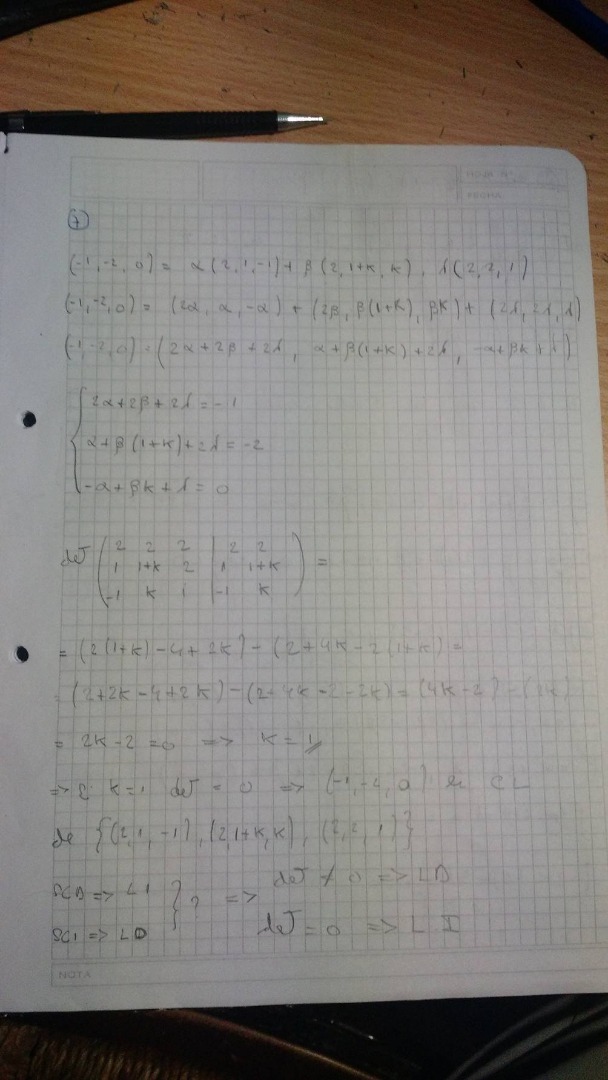 HOJA Nº
FECHA
7
(-1, -2, 0) = α(2, 1, -1) + β(2, 1+K, K), λ(2, 2, 1)
(-1, -2, 0) = (2α, α, -α) + (2β, β(1+K), βK) + (2λ, 2λ, λ)
(-1, -2, 0) = (2α + 2β + 2λ, α + β(1+K) + 2λ, -α + βK + λ)
2α + 2β + 2λ = -1
α + β(1+K) + 2λ = -2
-α + βK + λ = 0
det ( 2 2 2 | 2 2
1 1+K 2 | 1 1+K
-1 K 1 | -1 K ) =
= (2(1+K) - 4 + 2K) - (2 + 4K - 2(1+K) =
= (2 + 2K - 4 + 2K) - (2 + 4K - 2 - 2K) = (4K - 2) - (2K)
= 2K - 2 = 0 => K = 1
=> K = 1 det = 0 => (-1, -2, 0) CL
de {(2, 1, -1), (2, 1+K, K), (2, 2, 1)}
SCD => LI } ? => det ≠ 0 => LD
SCI => LD det = 0 => L I
NOTA